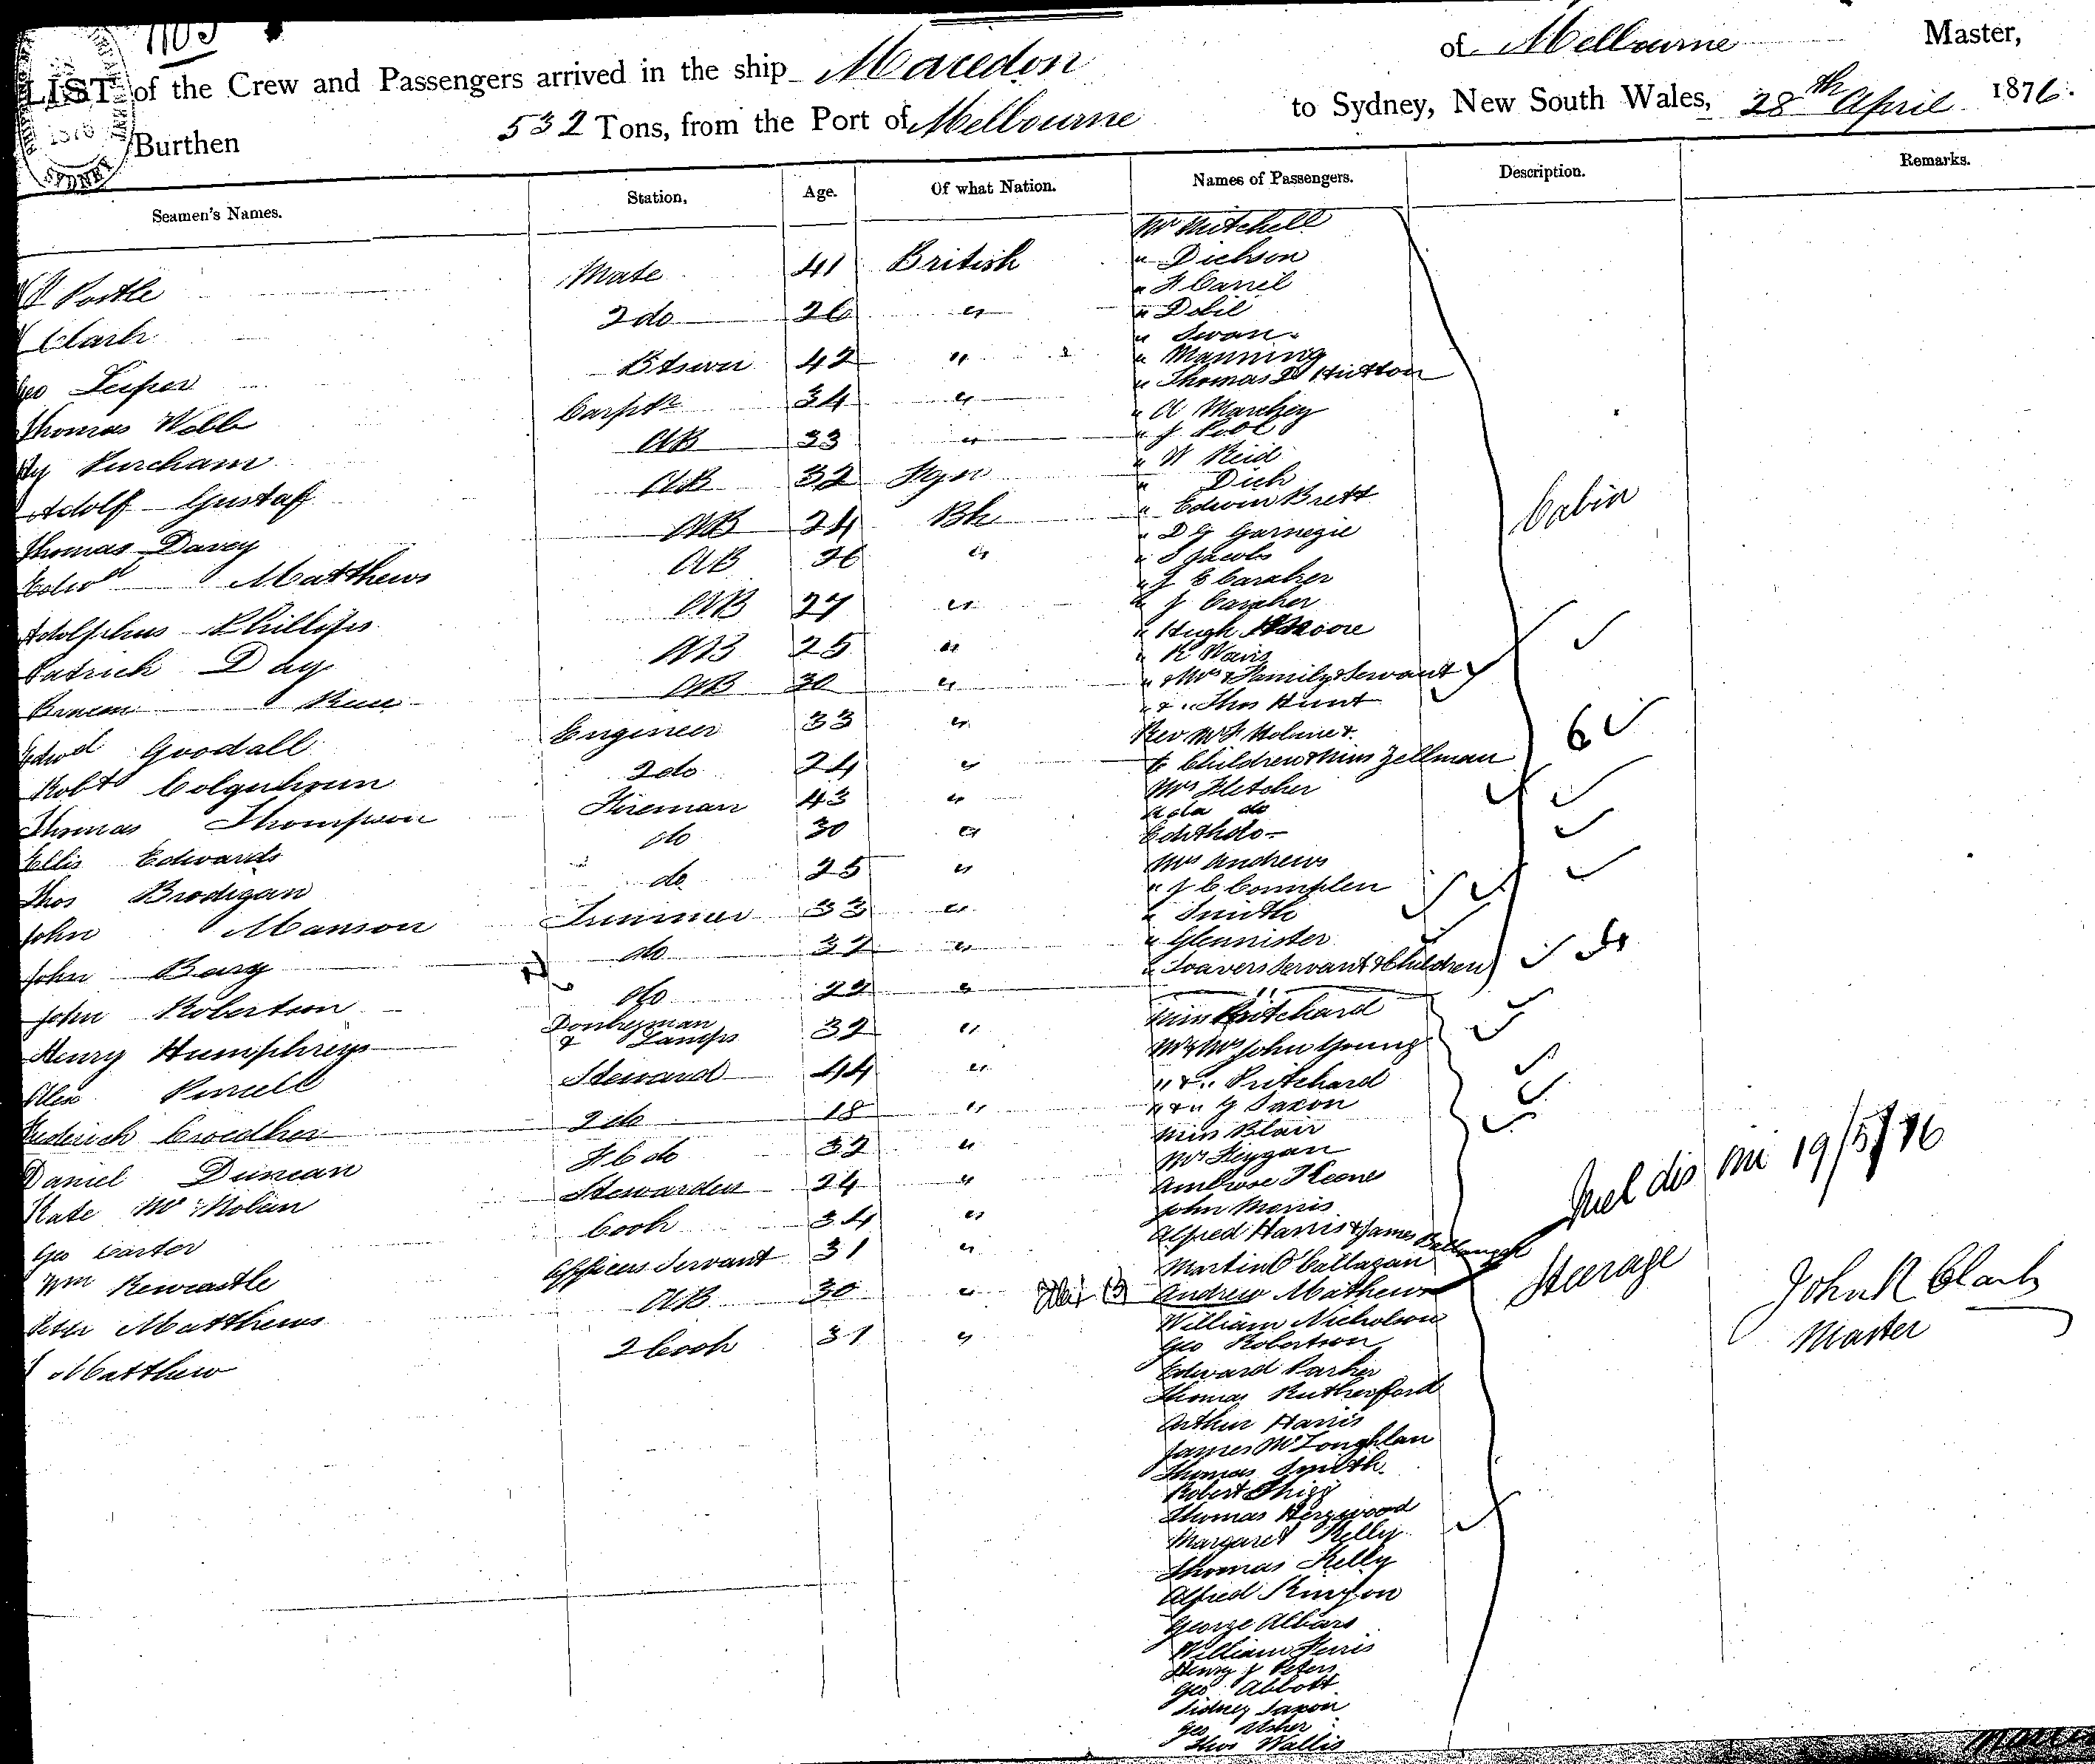 1103
LIST of the Crew and Passengers arrived in the ship Macedon of Melbourne Master,
Burthen 532 Tons, from the Port of Melbourne to Sydney, New South Wales, 28th April 1876.
SYDNEY
Seamen's Names. Station, Age. Of what Nation. Names of Passengers. Description. Remarks.
Postle Mate 41 British
Clark 2 do 26 "
Geo Leiper Btswn 42 "
Thomas Webb Carptr 34 "
Hy Purcham AB 33 "
Adolf Gustaff AB 32
Thomas Davey AB 24 Bh
Edwd Matthews AB 36 "
Adolphus Phillips AB 27 "
Patrick Day AB 25 "
AB 30 "
Edwd Goodall Engineer 33 "
Robt Colquhoun 2 do 24 "
Thomas Thompson Fireman 43 "
Ellis Edwards do 30 "
Thos Brodigan do 25 "
John Manson Trimmer 33 "
John Barg do 32 "
John Robertson do 22 "
Henry Humphreys Donkeyman & Lamps 32 "
Alex Purcell Steward 44 "
Frederick Crowther 2 do 18 "
Daniel Duncan F C do 32 "
Kate McNolan Stewardess 24 "
Geo Carter Cook 34 "
Wm Newcastle Officers Servant 31 "
Peter Matthews AB 30 "
Matthew 2 Cook 31 "
Mr Mitchell
" Dickson
" Swan
" Manning
" Thomas D Hutton
" W Reid
" Dick
" Edwin Brett
" D G Garnegie
" S Jacobs
" J E Caraher
" J Caraher
" Hugh Moore
" & Mrs & Family & Servant
" & " Thos Hunt
6 Children & Miss Zellman
Mrs Fletcher
Ada do
Edith do
Mrs Andrews
" Smith
" Glennister
" Soavers Servant & Children
Cabin
6
4
Miss Pritchard
Mr & Mrs John Young
" & " Pritchard
" & " G Saxon
Miss Blair
Mrs Keygan
Ambrose Keone
John Morris
Alfred Harris & James
Martin O'Callagan
Andrew Mathews
William Nicholson
Geo Robertson
Edward Parker
Thomas Rutherford
Arthur Harris
James McLoughlan
Thomas Smith
Robert
Thomas Heyswood
Margaret Kelly
Thomas Kelly
Alfred Kinson
George Albars
William Ferris
Henry J Peters
Geo Abbott
Sidney Saxon
Geo Usher
Thos Wallis
Steerage
dis 19/5/76
John R Clark
Master